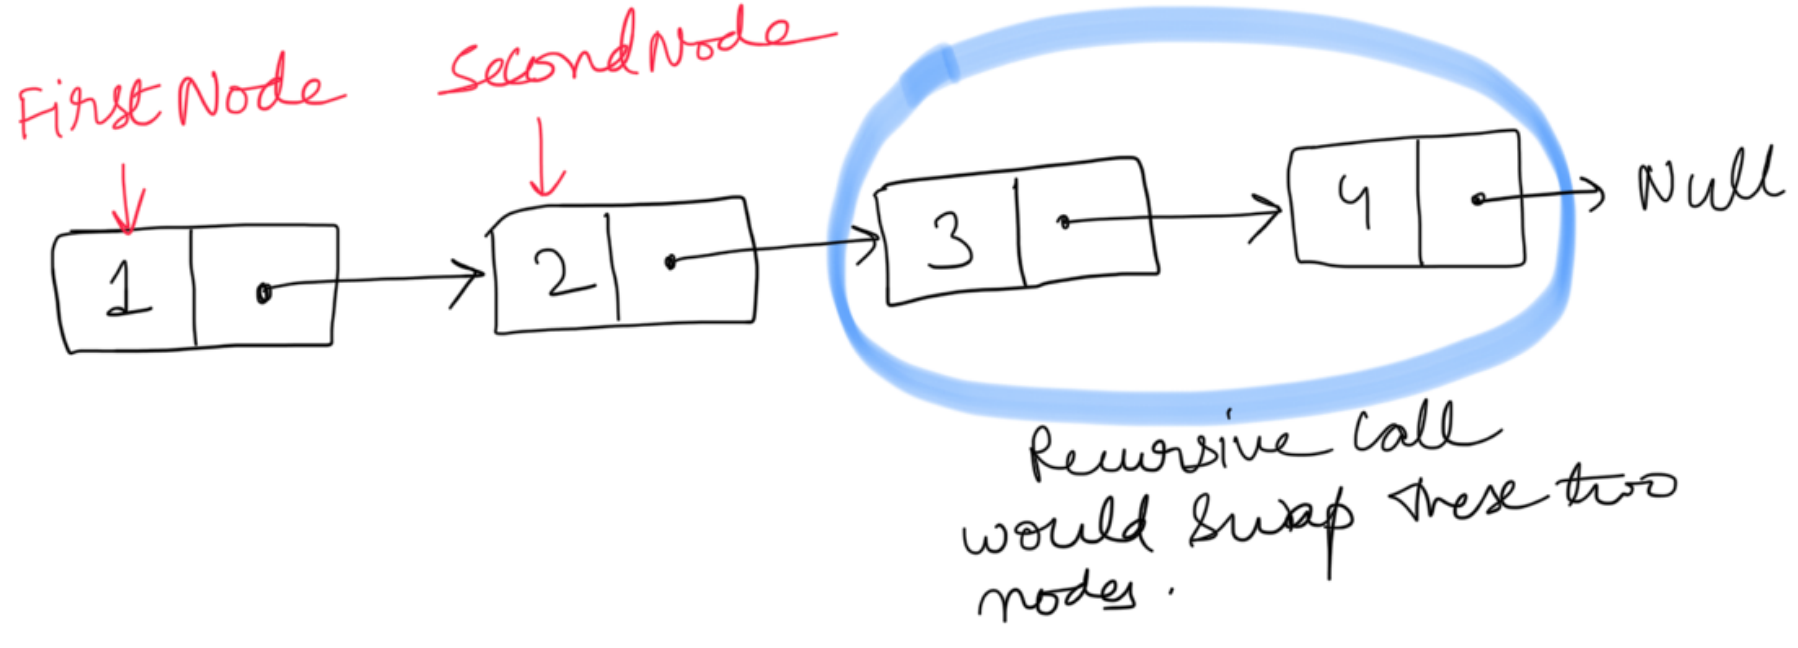 FirstNode
SecondNode
1
2
3
4
Null
Recursive Call
would Swap these two
nodes.